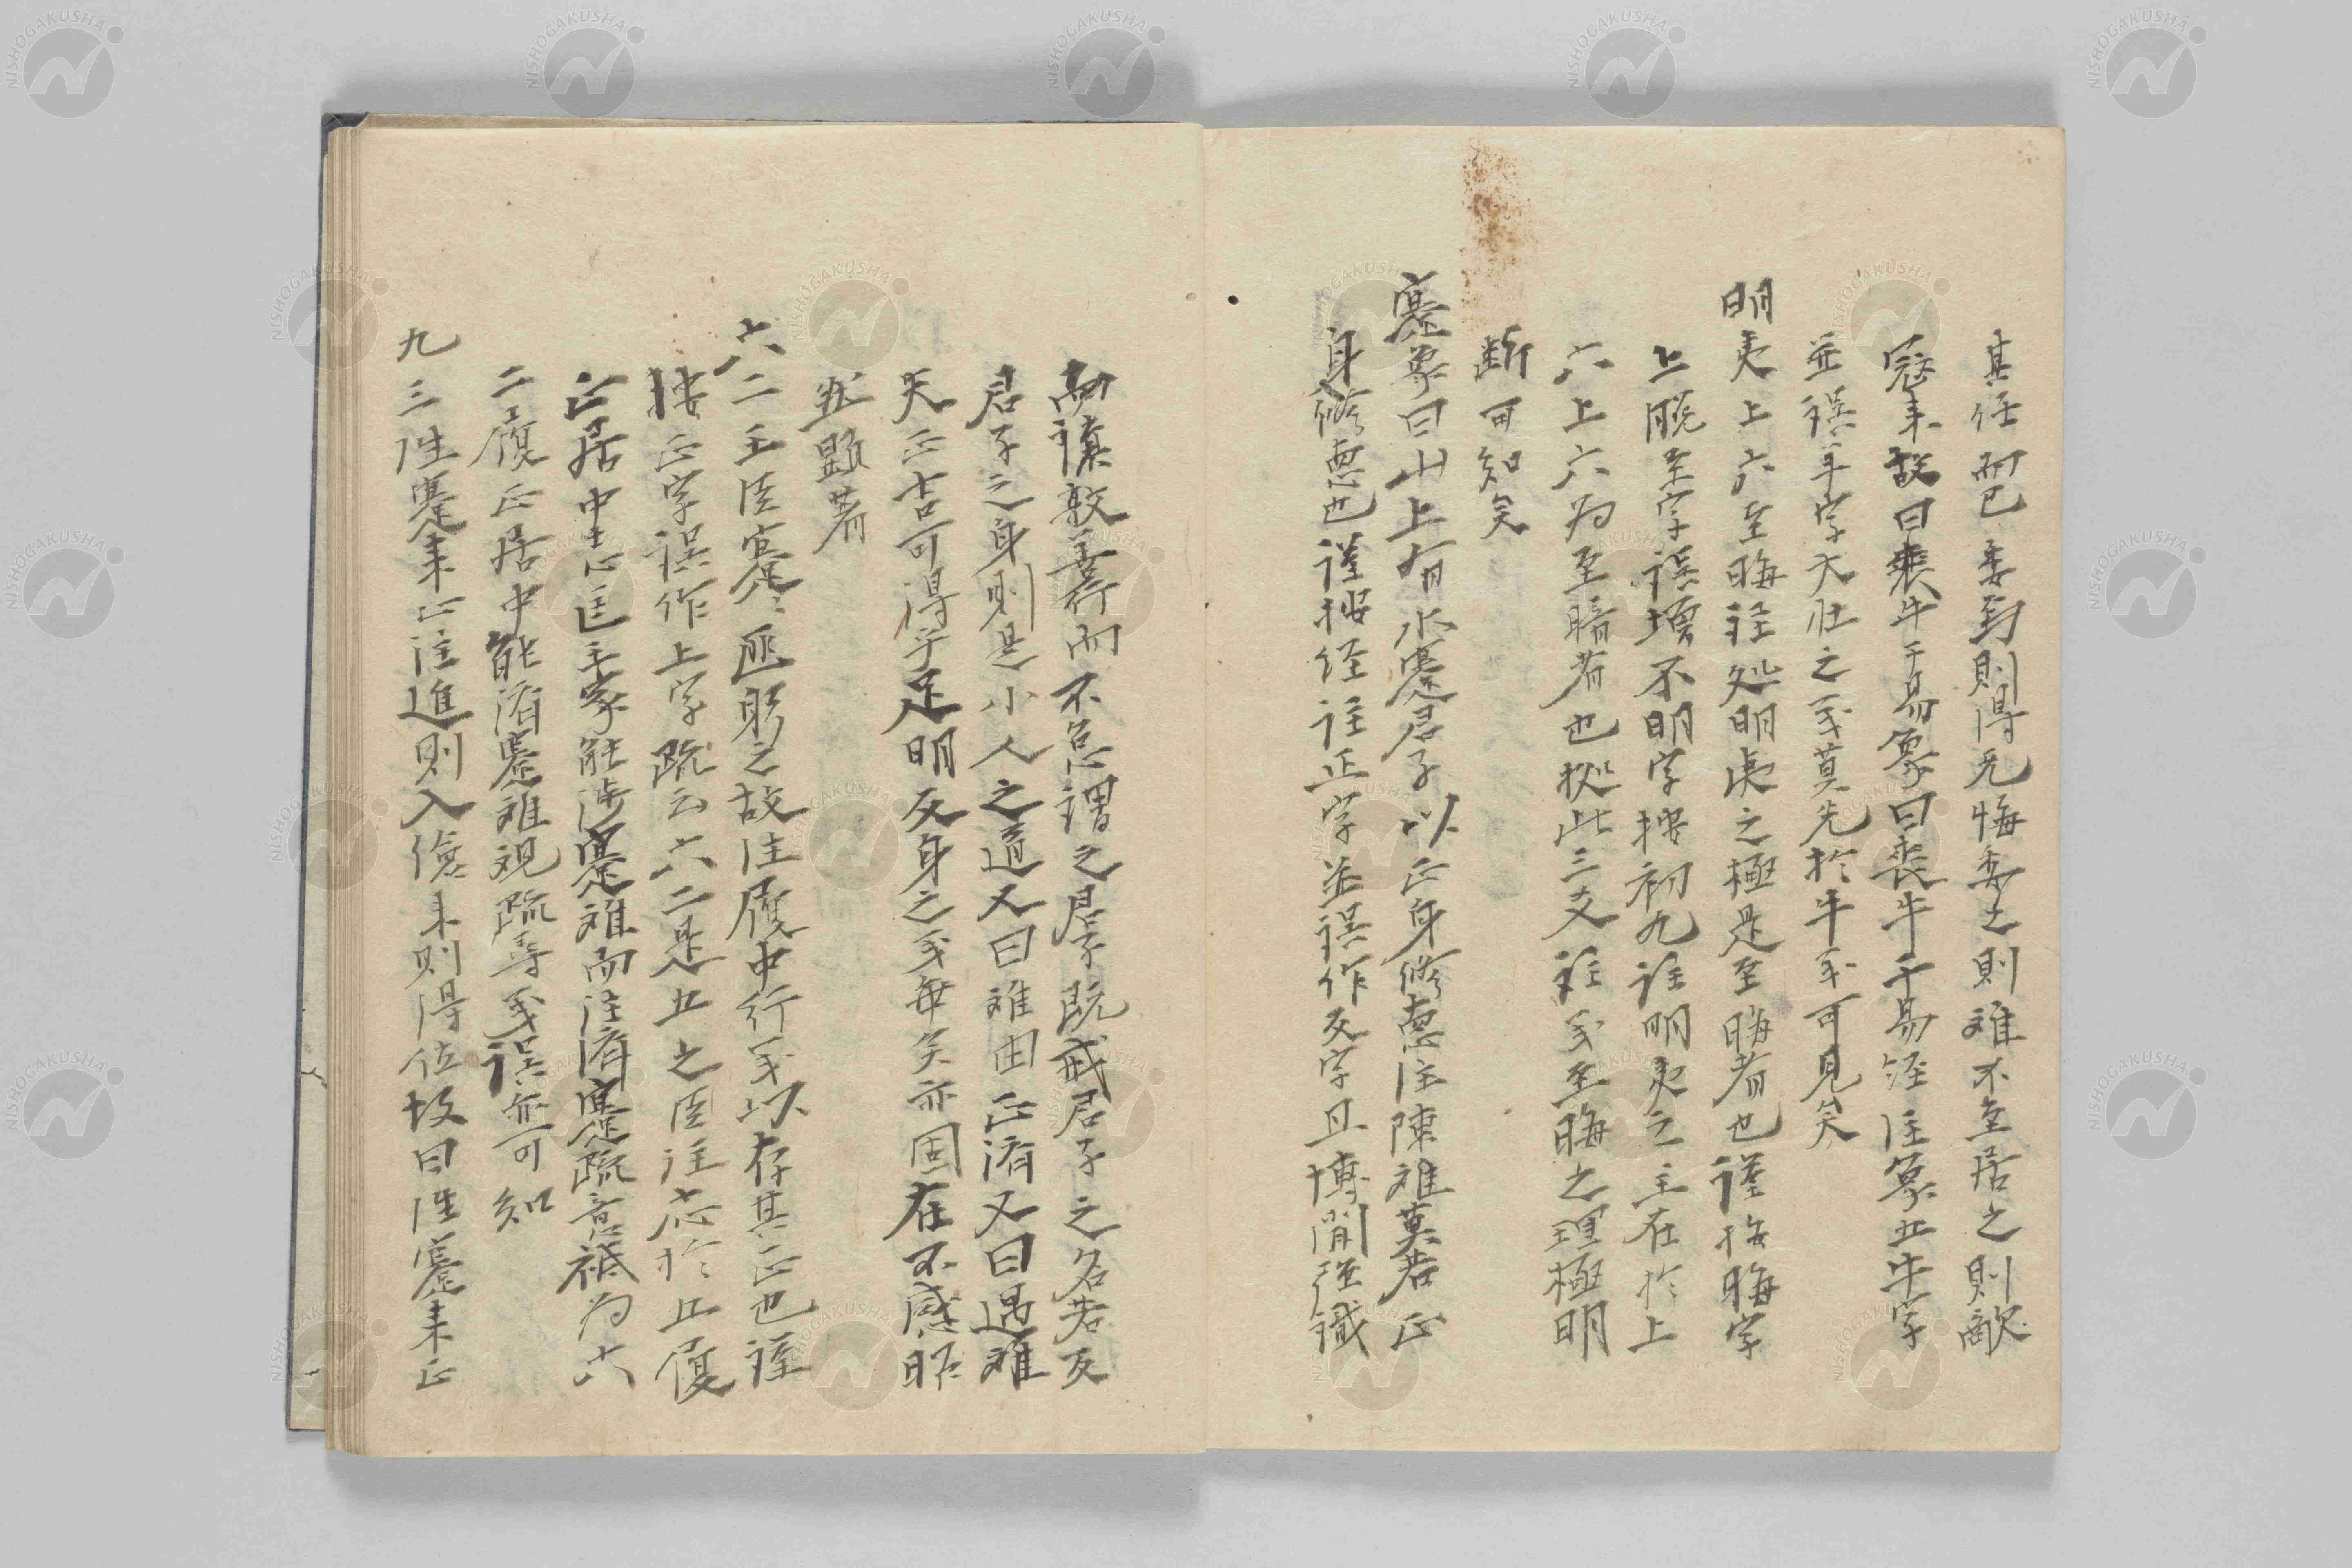 其任而已委身則得无悔委之則難不至居之則敵
寇来故曰喪牛于易象曰喪牛于易経注象五牛字
並誤羊字大壮之义莫先於牛义可見矣
明夷上六至晦注処明夷之極是至晦者也謹按晦字
上脱至字誤増不明字按初九注明夷之主在於上
六上六為至暗者也拠此三爻注义至晦之理極明
断可知矣
蹇象曰山上有水蹇君子以正身修悳注除難莫若正
身修悳也謹按経注正字並誤作反字且博聞強識
而讓敦善行而不怠謂之君子既戒君子之名若反
君子之身則是小人之道又曰難由正済又曰遇難
失正吉可得乎是明反身之义毎矣亦固在不惑昭
然顕著
六二王臣蹇〻匪躬之故注履中行义以存其正也謹
按正字誤作上字疏云六二是五之臣注志於五履
正居中志匡王家能渉蹇難而注済蹇疏意祗為六
二履正居中能済蹇難視疏等义誤亦可知
九三往蹇来正注進則入倹来則得位故曰往蹇来正
NISHOGAKUSHA